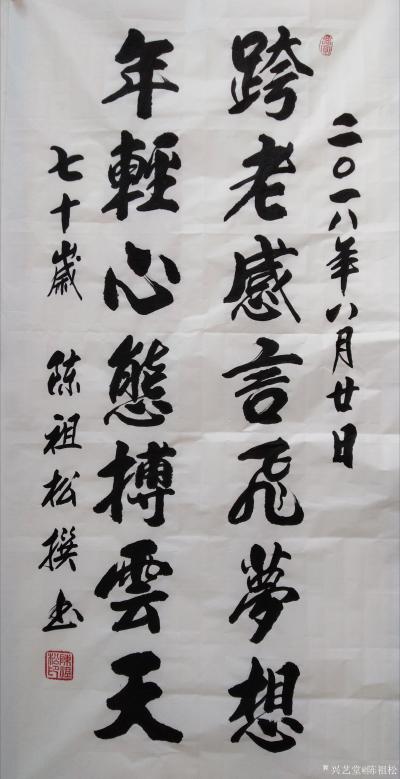 二〇一八年八月廿日
跨老感言飛夢想
年輕心態搏雲天
七十歲 陈祖松撰书
兴艺堂@陈祖松